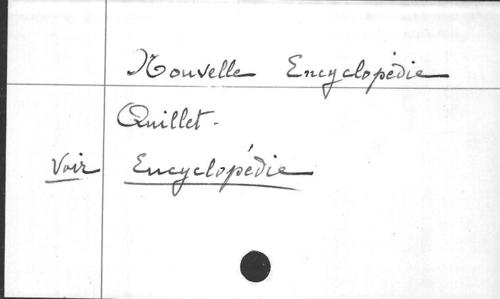 Nouvelle Encyclopédie
Quillet.
Voir Encyclopédie